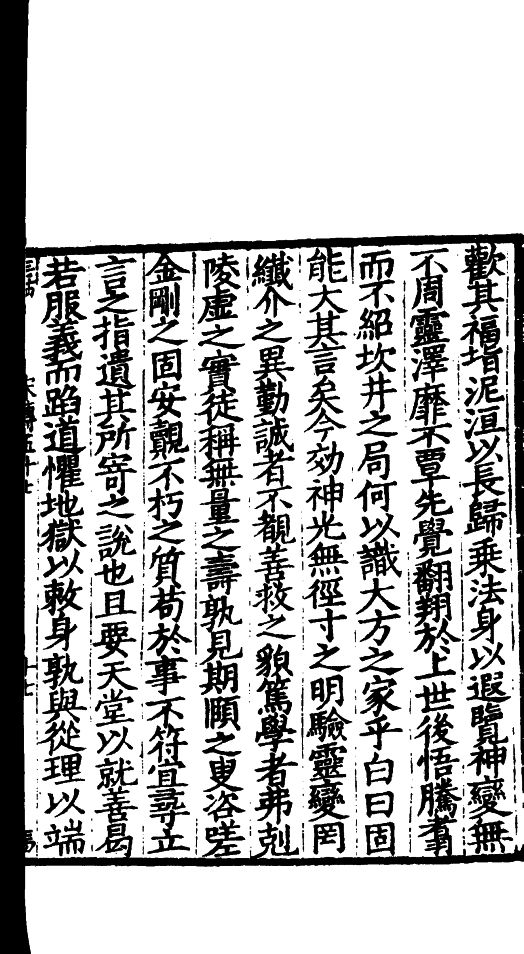 歡其福指泥洹以長歸乗法身以遐覽神變無
不周靈澤靡不覃先覺翻翔於上世後悟騰翥
而不紹坎井之局何以識大方之家乎白曰固
能大其言矣今効神光無徑寸之明驗靈變罔
纖介之異勤誠者不覩善救之貌篤學者弗剋
陵虛之實徒稱無量之壽孰見期頥之叟咨嗟
金剛之固安覿不朽之質苟於事不符宜尋立
言之指遺其所寄之說也且要天堂以就善曷
若服義而蹈道懼地獄以敕身孰與從理以端